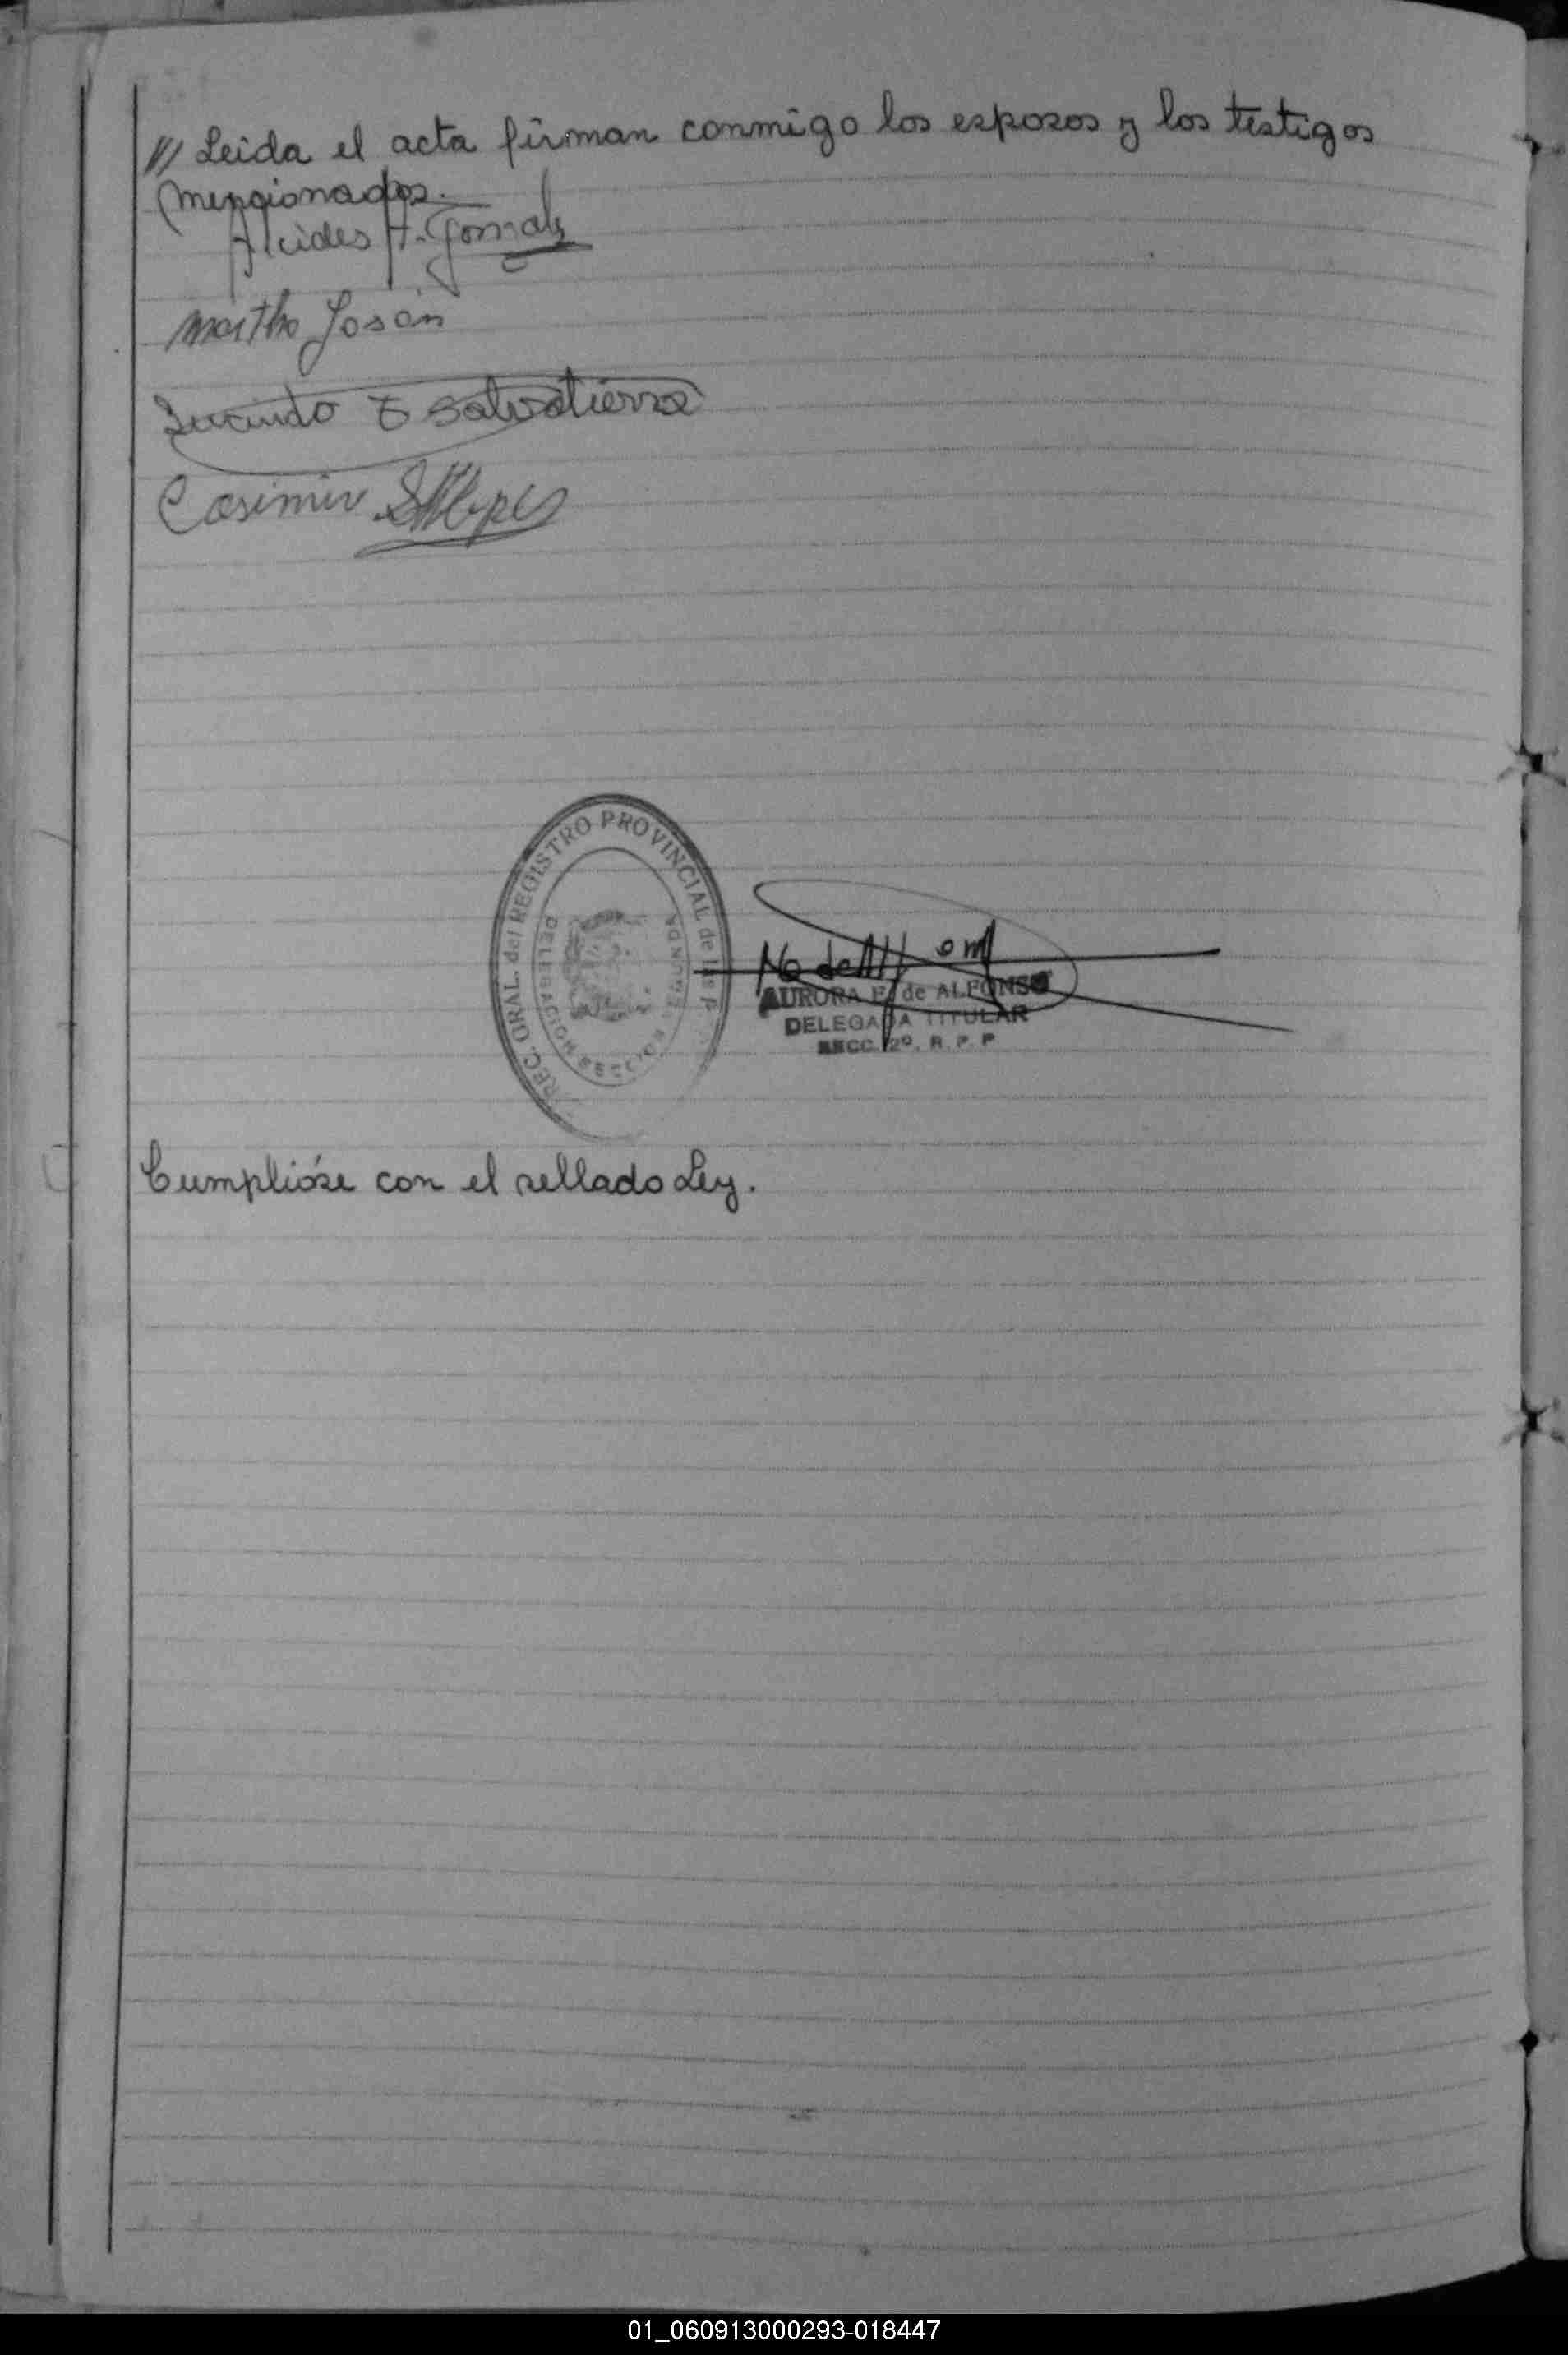 /// Leida el acta firman conmigo los esposos y los testigos
mencionados.
Alcides A. Gonzalz
Martha Josan
E Salvatierra
Casimir
DIREC. GRAL. del REGISTRO PROVINCIAL de las P
DELEGACION SECCION SEGUNDA
AURORA F. de ALFONSO
DELEGADA TITULAR
SECC. 2º. R. P. P
Cumplióse con el sellado Ley.
01_060913000293-018447